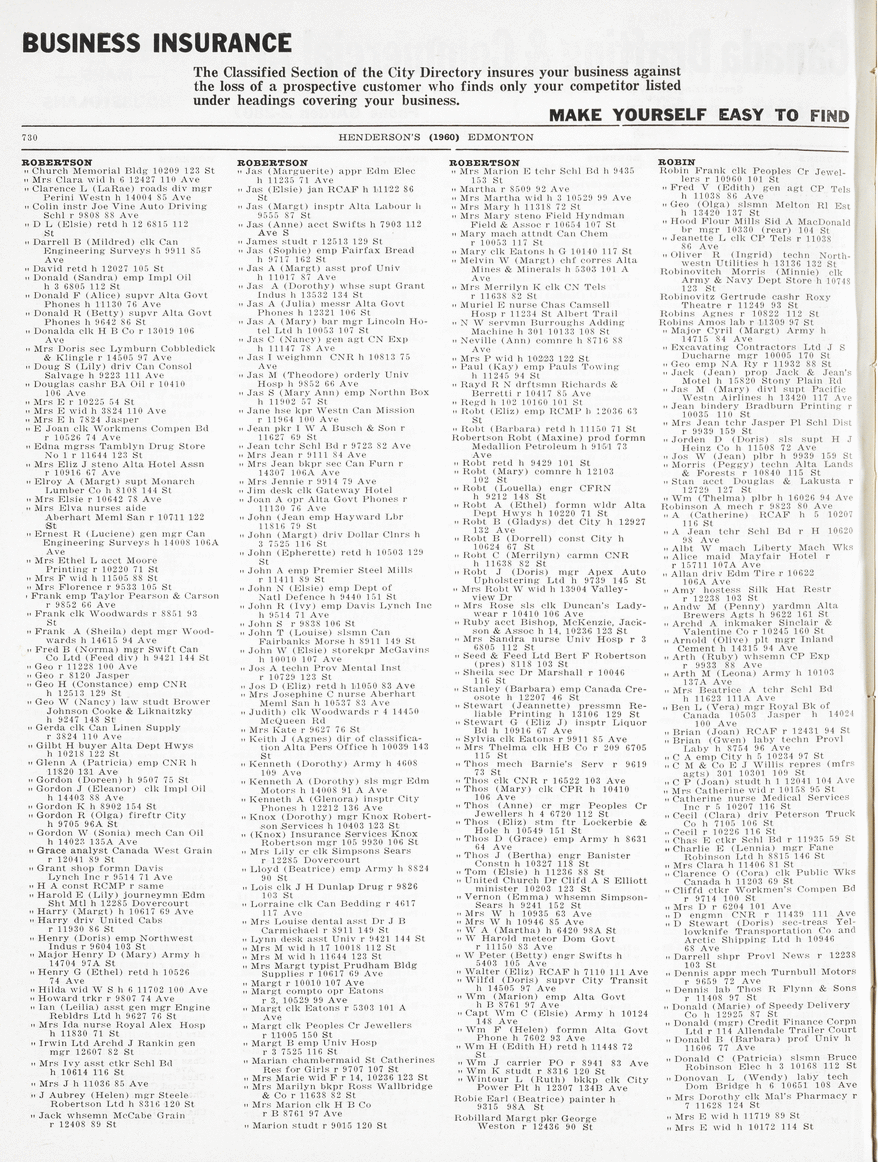 BUSINESS INSURANCE
The Classified Section of the City Directory insures your business against
the loss of a prospective customer who finds only your competitor listed
under headings covering your business.
MAKE YOURSELF EASY TO FIND
730
HENDERSON'S (1960) EDMONTON
ROBERTSON
" Church Memorial Bldg 10209 123 St
" Mrs Clara wid h 6 12427 110 Ave
" Clarence L (LaRae) roads div mgr
Perini Westn h 14004 85 Ave
" Colin instr Joe Vine Auto Driving
Schl r 9808 88 Ave
" D L (Elsie) retd h 12 6815 112
St
" Darrell B (Mildred) clk Can
Engineering Surveys h 9911 85
Ave
" David retd h 12027 105 St
" Donald (Sandra) emp Impl Oil
h 3 6805 112 St
" Donald F (Alice) supvr Alta Govt
Phones h 11130 76 Ave
" Donald R (Betty) supvr Alta Govt
Phones h 9642 86 St
" Donalda clk H B Co r 13019 106
Ave
" Mrs Doris sec Lymburn Cobbledick
& Klingle r 14505 97 Ave
" Doug S (Lily) driv Can Consol
Salvage h 9223 111 Ave
" Douglas cashr BA Oil r 10410
106 Ave
" Mrs E r 10225 54 St
" Mrs E wid h 3824 110 Ave
" Mrs E h 7824 Jasper
" E Joan clk Workmens Compen Bd
r 10526 74 Ave
" Edna mgrss Tamblyn Drug Store
No 1 r 11644 123 St
" Mrs Eliz J steno Alta Hotel Assn
r 10916 67 Ave
" Elroy A (Margt) supt Monarch
Lumber Co h 8108 144 St
" Mrs Elsie r 10642 78 Ave
" Mrs Elva nurses aide
Aberhart Meml San r 10711 122
St
" Ernest R (Luciene) gen mgr Can
Engineering Surveys h 14008 106A
Ave
" Mrs Ethel L acct Moore
Printing r 10220 71 St
" Mrs F wid h 11505 88 St
" Mrs Florence r 9533 105 St
" Frank emp Taylor Pearson & Carson
r 9852 66 Ave
" Frank clk Woodwards r 8851 93
St
" Frank A (Sheila) dept mgr Wood-
wards h 14615 94 Ave
" Fred B (Norma) mgr Swift Can
Co Ltd (Feed div) h 9421 144 St
" Geo r 11228 100 Ave
" Geo r 8120 Jasper
" Geo H (Constance) emp CNR
h 12513 129 St
" Geo W (Nancy) law studt Brower
Johnson Cooke & Liknaitzky
h 9247 148 St
" Gerda clk Can Linen Supply
r 3824 110 Ave
" Gilbt H buyer Alta Dept Hwys
h 10218 122 St
" Glenn A (Patricia) emp CNR h
11820 131 Ave
" Gordon (Doreen) h 9507 75 St
" Gordon J (Eleanor) clk Impl Oil
h 14403 88 Ave
" Gordon K h 8902 154 St
" Gordon R (Olga) fireftr City
h 9705 96A St
" Gordon W (Sonia) mech Can Oil
h 14023 135A Ave
" Grace analyst Canada West Grain
r 12041 89 St
" Grant shop formn Davis
Lynch Inc r 9514 71 Ave
" H A const RCMP r same
" Harold E (Lily) journeymn Edm
Sht Mtl h 12285 Dovercourt
" Harry (Margt) h 10617 69 Ave
" Harry driv United Cabs
r 11930 86 St
" Henry (Doris) emp Northwest
Indus r 9604 103 St
" Major Henry D (Mary) Army h
14704 97A St
" Henry G (Ethel) retd h 10526
74 Ave
" Hilda wid W S h 6 11702 100 Ave
" Howard trkr r 9807 74 Ave
" Ian (Leilia) asst gen mgr Engine
Rebldrs Ltd h 9627 76 St
" Mrs Ida nurse Royal Alex Hosp
h 11830 71 St
" Irwin Ltd Archd J Rankin gen
mgr 12607 82 St
" Mrs Ivy asst ctkr Schl Bd
h 10614 116 St
" Mrs J h 11036 85 Ave
" J Aubrey (Helen) mgr Steele
Robertson Ltd h 8316 120 St
" Jack whsemn McCabe Grain
r 12408 89 St
ROBERTSON
" Jas (Marguerite) appr Edm Elec
h 11235 71 Ave
" Jas (Elsie) jan RCAF h 11122 86
St
" Jas (Margt) insptr Alta Labour h
9555 87 St
" Jas (Anne) acct Swifts h 7903 112
Ave S
" James studt r 12513 129 St
" Jas (Sophie) emp Fairfax Bread
h 9717 162 St
" Jas A (Margt) asst prof Univ
h 11017 87 Ave
" Jas A (Dorothy) whse supt Grant
Indus h 13532 134 St
" Jas A (Julia) messr Alta Govt
Phones h 12321 106 St
" Jas A (Mary) bar mgr Lincoln Ho-
tel Ltd h 10053 107 St
" Jas C (Nancy) gen agt CN Exp
h 11147 78 Ave
" Jas I weighmn CNR h 10813 75
Ave
" Jas M (Theodore) orderly Univ
Hosp h 9852 66 Ave
" Jas S (Mary Ann) emp Northn Box
h 11902 57 St
" Jane hse kpr Westn Can Mission
r 11964 100 Ave
" Jean pkr I W A Busch & Son r
11627 69 St
" Jean tchr Schl Bd r 9723 82 Ave
" Mrs Jean r 9111 84 Ave
" Mrs Jean bkpr sec Can Furn r
14307 106A Ave
" Mrs Jennie r 9914 79 Ave
" Jim desk clk Gateway Hotel
" Joan A opr Alta Govt Phones r
11130 76 Ave
" John (Jean emp Hayward Lbr
11816 79 St
" John (Margt) driv Dollar Clnrs h
3 7525 116 St
" John (Epherette) retd h 10503 129
St
" John A emp Premier Steel Mills
r 11411 89 St
" John N (Elsie) emp Dept of
Natl Defence h 9440 151 St
" John R (Ivy) emp Davis Lynch Inc
h 9514 71 Ave
" John S r 9838 106 St
" John T (Louise) slsmn Can
Fairbanks Morse h 8911 149 St
" John W (Elsie) storekpr McGavins
h 10010 107 Ave
" Jos A techn Prov Mental Inst
r 10729 123 St
" Jos D (Eliz) retd h 11050 83 Ave
" Mrs Josephine C nurse Aberhart
Meml San h 10537 83 Ave
" Judith) clk Woodwards r 4 14450
McQueen Rd
" Mrs Kate r 9627 76 St
" Keith J (Agnes) dir of classifica-
tion Alta Pers Office h 10039 143
St
" Kenneth (Dorothy) Army h 4608
109 Ave
" Kenneth A (Dorothy) sls mgr Edm
Motors h 14008 91 A Ave
" Kenneth A (Glenora) insptr City
Phones h 12212 136 Ave
" Knox (Dorothy) mgr Knox Robert-
son Services h 10403 123 St
" (Knox) Insurance Services Knox
Robertson mgr 105 9930 106 St
" Mrs Lily cr clk Simpsons Sears
r 12285 Dovercourt
" Lloyd (Beatrice) emp Army h 8824
90 St
" Lois clk J H Dunlap Drug r 9826
103 St
" Lorraine clk Can Bedding r 4617
117 Ave
" Mrs Louise dental asst Dr J B
Carmichael r 8911 149 St
" Lynn desk asst Univ r 9421 144 St
" Mrs M wid h 17 11018 112 St
" Mrs M wid h 11644 123 St
" Mrs Margt typist Prudham Bldg
Supplies r 10617 69 Ave
" Margt r 10010 107 Ave
" Margt compto opr Eatons
r 3, 10529 99 Ave
" Margt clk Eatons r 5303 101 A
Ave
" Margt clk Peoples Cr Jewellers
r 11005 150 St
" Margt B emp Univ Hosp
r 3 7525 116 St
" Marian chambermaid St Catherines
Res for Girls r 9707 107 St
" Mrs Marie wid F r 14, 10236 123 St
" Mrs Marilyn bkpr Ross Wallbridge
& Co r 11638 82 St
" Mrs Marion clk H B Co
r B 8761 97 Ave
" Marion studt r 9015 120 St
ROBERTSON
" Mrs Marion E tchr Schl Bd h 9435
153 St
" Martha r 8509 92 Ave
" Mrs Martha wid h 3 10529 99 Ave
" Mrs Mary h 11318 72 St
" Mrs Mary steno Field Hyndman
Field & Assoc r 10654 107 St
" Mary mach attndt Can Chem
r 10053 117 St
" Mary clk Eatons h G 10140 117 St
" Melvin W (Margt) chf corres Alta
Mines & Minerals h 5303 101 A
Ave
" Mrs Merrilyn K clk CN Tels
r 11638 82 St
" Muriel E nurse Chas Camsell
Hosp r 11234 St Albert Trail
" N W servmn Burroughs Adding
Machine h 301 10133 108 St
" Neville (Ann) comnre h 8716 88
Ave
" Mrs P wid h 10223 122 St
" Paul (Kay) emp Pauls Towing
h 11245 94 St
" Rayd R N drftsmn Richards &
Berretti r 10417 85 Ave
" Regd h 102 10160 101 St
" Robt (Eliz) emp RCMP h 12036 63
St
" Robt (Barbara) retd h 11150 71 St
Robertson Robt (Maxine) prod formn
Medallion Petroleum h 9151 73
Ave
" Robt retd h 9429 101 St
" Robt (Mary) comnre h 12103
102 St
" Robt (Louella) engr CFRN
h 9212 148 St
" Robt A (Ethel) formn wldr Alta
Dept Hwys h 10220 71 St
" Robt B (Gladys) det City h 12927
132 Ave
" Robt B (Dorrell) const City h
10624 67 St
" Robt C (Merrilyn) carmn CNR
h 11638 82 St
" Robt J (Doris) mgr Apex Auto
Upholstering Ltd h 9739 145 St
" Mrs Robt W wid h 13904 Valley-
view Dr
" Mrs Rose sls clk Duncan's Lady-
wear r 10410 106 Ave
" Ruby acct Bishop, McKenzie, Jack-
son & Assoc h 14, 10236 123 St
" Mrs Sandra nurse Univ Hosp r 3
6805 112 St
" Seed & Feed Ltd Bert F Robertson
(pres) 8118 103 St
" Sheila sec Dr Marshall r 10046
116 St
" Stanley (Barbara) emp Canada Cre-
osote h 12207 46 St
" Stewart (Jeannette) pressmn Re-
liable Printing h 13106 129 St
" Stewart G (Eliz J) insptr Liquor
Bd h 10916 67 Ave
" Sylvia clk Eatons r 9911 85 Ave
" Mrs Thelma clk HB Co r 209 6705
115 St
" Thos mech Barnie's Serv r 9619
73 St
" Thos clk CNR r 16522 103 Ave
" Thos (Mary) clk CPR h 10410
106 Ave
" Thos (Anne) cr mgr Peoples Cr
Jewellers h 4 6720 112 St
" Thos (Eliz) stm ftr Lockerbie &
Hole h 10549 151 St
" Thos D (Grace) emp Army h 8631
64 Ave
" Thos J (Bertha) engr Banister
Constn h 10327 118 St
" Tom (Elsie) h 11236 88 St
" United Church Dr Clifd A S Elliott
minister 10203 123 St
" Vernon (Emma) whsemn Simpson-
Sears h 9241 152 St
" Mrs W h 10935 63 Ave
" Mrs W h 10946 85 Ave
" W A (Martha) h 6420 98A St
" W Harold meteor Dom Govt
r 11150 83 Ave
" W Peter (Betty) engr Swifts h
5403 105 Ave
" Walter (Eliz) RCAF h 7110 111 Ave
" Wilfd (Doris) supvr City Transit
h 14505 97 Ave
" Wm (Marion) emp Alta Govt
h B 8761 97 Ave
" Capt Wm C (Elsie) Army h 10124
148 Ave
" Wm F (Helen) formn Alta Govt
Phone h 7602 93 Ave
" Wm H (Edith H) retd h 11448 72
St
" Wm J carrier PO r 8941 83 Ave
" Wm K studt r 8316 120 St
" Wintour L (Ruth) bkkp clk City
Power Plt h 12307 134B Ave
Robie Earl (Beatrice) painter h
9315 98A St
Robillard Margt pkr George
Weston r 12436 90 St
ROBIN
Robin Frank clk Peoples Cr Jewel-
lers r 10960 101 St
" Fred V (Edith) gen agt CP Tels
h 11038 86 Ave
" Geo (Olga) slsmn Melton Rl Est
h 13420 137 St
" Hood Flour Mills Sid A MacDonald
br mgr 10330 (rear) 104 St
" Jeanette L clk CP Tels r 11038
86 Ave
" Oliver R (Ingrid) techn North-
westn Utilities h 13136 132 St
Robinovitch Morris (Minnie) clk
Army & Navy Dept Store h 10748
123 St
Robinovitz Gertrude cashr Roxy
Theatre r 11249 93 St
Robins Agnes r 10822 112 St
Robins Amos lab r 11309 97 St
" Major Cyril (Margt) Army h
14715 84 Ave
" Excavating Contractors Ltd J S
Ducharme mgr 10005 170 St
" Geo emp NA Ry r 11932 88 St
" Jack (Jean) prop Jack & Jean's
Motel h 15820 Stony Plain Rd
" Jas M (Mary) divl supt Pacific
Westn Airlines h 13420 117 Ave
" Jean bindery Bradburn Printing r
10035 110 St
" Mrs Jean tchr Jasper Pl Schl Dist
r 9939 159 St
" Jorden D (Doris) sls supt H J
Heinz Co h 11508 72 Ave
" Jos W (Jean) plbr h 9939 159 St
" Morris (Peggy) techn Alta Lands
& Forests r 10840 115 St
" Stan acct Douglas & Lakusta r
12729 127 St
" Wm (Thelma) plbr h 16026 94 Ave
Robinson A mech r 9823 80 Ave
" A (Catherine) RCAF h 5 10207
116 St
" A Jean tchr Schl Bd r H 10620
98 Ave
" Albt W mach Liberty Mach Wks
" Alice maid Mayfair Hotel r
r 15711 107A Ave
" Allan driv Edm Tire r 10622
106A Ave
" Amy hostess Silk Hat Restr
r 12238 103 St
" Andw M (Penny) yardmn Alta
Brewers Agts h 9622 161 St
" Archd A inkmaker Sinclair &
Valentine Co r 10245 160 St
" Arnold (Olive) plt mgr Inland
Cement h 14315 94 Ave
" Arth (Ruby) whsemn CP Exp
r 9933 88 Ave
" Arth M (Leona) Army h 10103
137A Ave
" Mrs Beatrice A tchr Schl Bd
h 11623 111A Ave
" Ben L (Vera) mgr Royal Bk of
Canada 10503 Jasper h 14024
100 Ave
" Brian (Joan) RCAF r 12431 94 St
" Brian (Gwen) laby techn Provl
Laby h 8754 96 Ave
" C A emp City h 5 10234 97 St
" C M & Co E J Willis repres (mfrs
agts) 301 10301 109 St
" C P (Joan) studt h 1 12041 104 Ave
" Mrs Catherine wid r 10158 95 St
" Catherine nurse Medical Services
Inc r 5 10207 116 St
" Cecil (Clara) driv Peterson Truck
Co h 7105 106 St
" Cecil r 10226 116 St
" Chas E ctkr Schl Bd r 11935 59 St
" Charlie E (Lennia) mgr Fane
Robinson Ltd h 8815 146 St
" Mrs Clara h 11406 81 St
" Clarence O (Cora) clk Public Wks
Canada h 11203 69 St
" Cliffd ctkr Workmen's Compen Bd
r 9714 100 St
" Mrs D r 6204 101 Ave
" D engmn CNR r 11439 111 Ave
" D Stewart (Doris) sec-treas Yel-
lowknife Transportation Co and
Arctic Shipping Ltd h 10946
68 Ave
" Darrell shpr Provl News r 12238
103 St
" Dennis appr mech Turnbull Motors
r 9659 72 Ave
" Dennis lab Thos R Flynn & Sons
r 11408 97 St
" Donald (Marie) of Speedy Delivery
Co h 12925 87 St
" Donald (mgr) Credit Finance Corpn
Ltd r 114 Allendale Trailer Court
" Donald B (Barbara) prof Univ h
11606 77 Ave
" Donald C (Patricia) slsmn Bruce
Robinson Elec h 3 10168 112 St
" Donovan L (Wendy) laby tech
Dom Bridge h 6 10651 108 Ave
" Mrs Dorothy clk Mal's Pharmacy r
7 11628 124 St
" Mrs E wid h 11719 89 St
" Mrs E wid h 10172 114 St